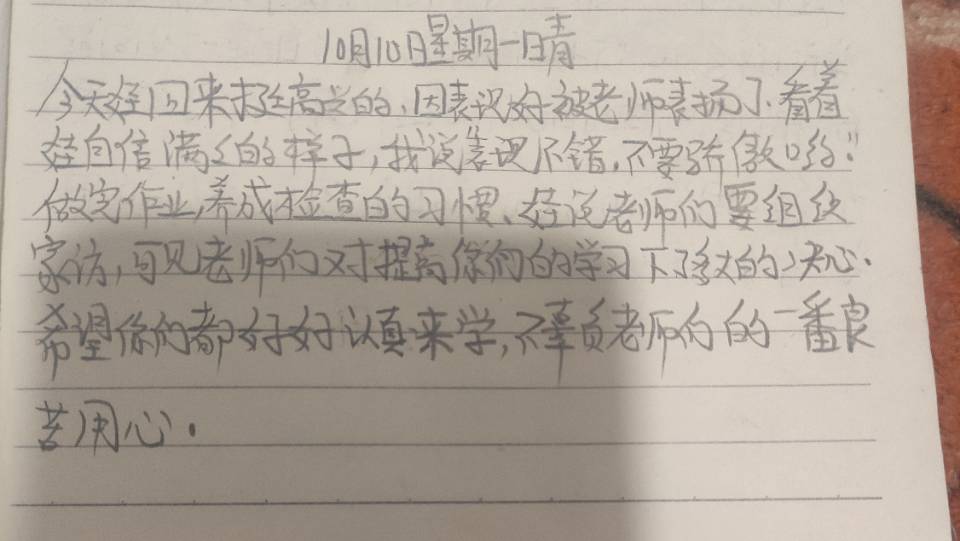 10月10日星期一 晴
今天娃回来挺高兴的,因表现好被老师表扬了.看着
娃自信满义的样子,我说"表现不错.不要骄傲哟!"
做完作业,养成检查的习惯、娃说老师们要组织
家访,可见老师们对提高你们的学习下了多大的决心.
希望你们都好好认真来学,不辜负老师们的一番良
苦用心.